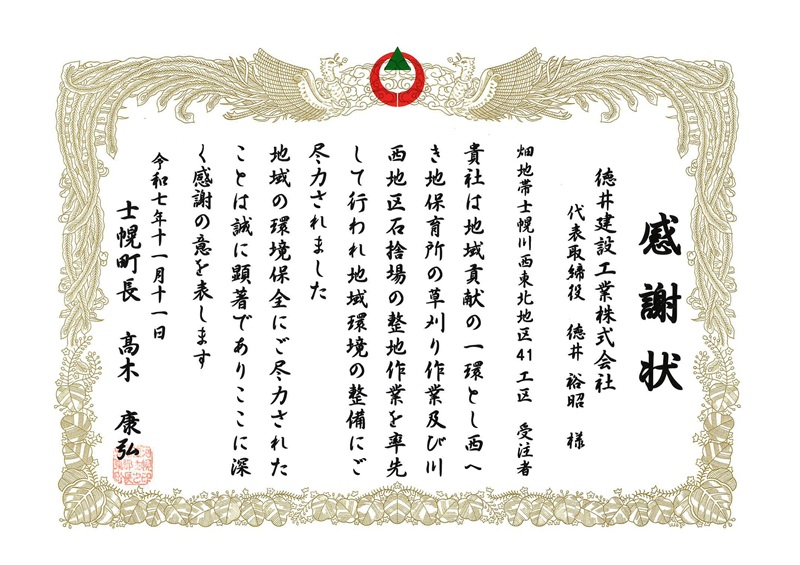 感謝状
徳井建設工業株式会社
代表取締役 徳井 裕昭 様
畑地帯士幌川西東北地区41工区 受注者
貴社は地域貢献の一環とし西へ
き地保育所の草刈り作業及び川
西地区石捨場の整地作業を率先
して行われ地域環境の整備にご
尽力されました
地域の環境保全にご尽力された
ことは誠に顕著でありここに深
く感謝の意を表します
令和七年十一月十一日
士幌町長 髙木 康弘